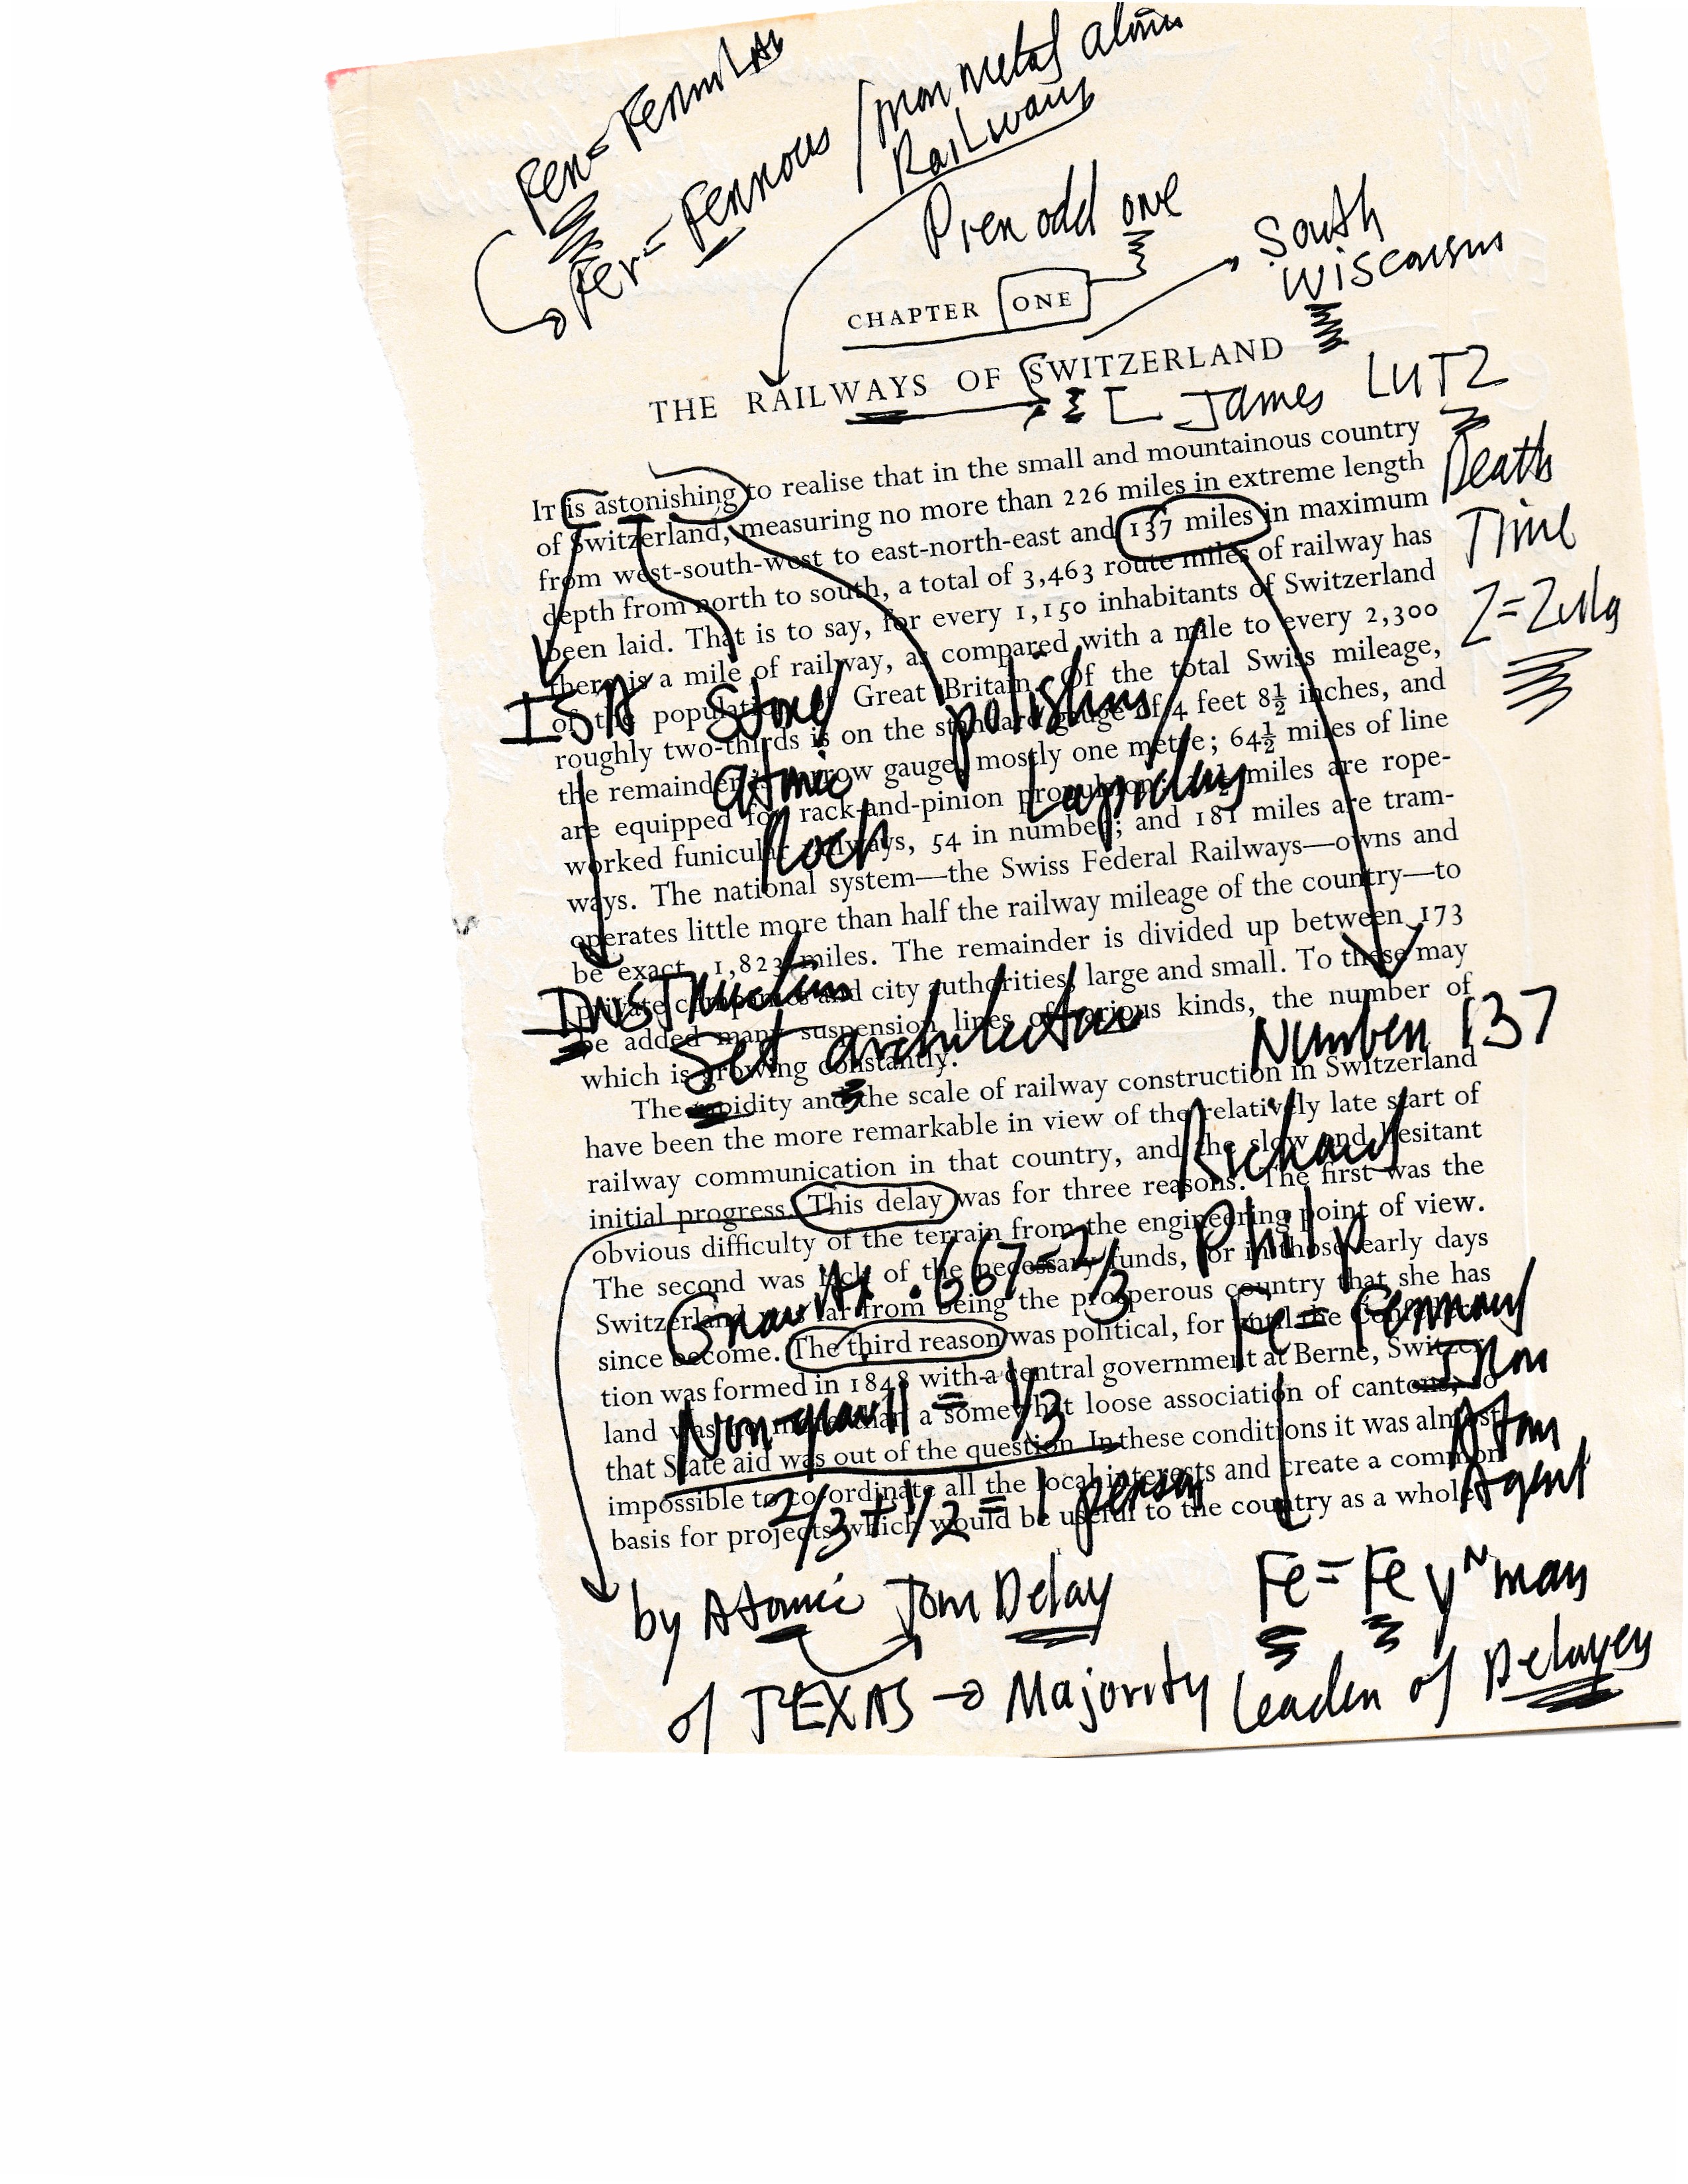 Fer = Fermulas
Fer = Ferrous / iron metal atoms
Railways
Pier odd one
South
Wisconsin
CHAPTER ONE
THE RAILWAYS OF SWITZERLAND
James LUTZ
Death
Time
Z = Zulu
It is astonishing to realise that in the small and mountainous country
of Switzerland, measuring no more than 226 miles in extreme length
from west-south-west to east-north-east and 137 miles in maximum
depth from north to south, a total of 3,463 route miles of railway has
been laid. That is to say, for every 1,150 inhabitants of Switzerland
there is a mile of railway, as compared with a mile to every 2,300
of the population of Great Britain. Of the total Swiss mileage,
roughly two-thirds is on the standard gauge of 4 feet 8½ inches, and
the remainder narrow gauge, mostly one metre; 64½ miles of line
are equipped for rack-and-pinion propulsion; miles are rope-
worked funicular railways, 54 in number; and 181 miles are tram-
ways. The national system—the Swiss Federal Railways—owns and
operates little more than half the railway mileage of the country—to
be exact, 1,823 miles. The remainder is divided up between 173
private companies and city authorities, large and small. To these may
be added many suspension lines of various kinds, the number of
which is growing constantly.
ISA Stone polishing /
atomic Lapidary
Rock
Instruction
Set architecture
Number 137
The rapidity and the scale of railway construction in Switzerland
have been the more remarkable in view of the relatively late start of
railway communication in that country, and the slow and hesitant
initial progress. This delay was for three reasons. The first was the
obvious difficulty of the terrain from the engineering point of view.
The second was lack of the necessary funds, for in those early days
Switzerland was far from being the prosperous country that she has
since become. The third reason was political, for until the Confedera-
tion was formed in 1848 with a central government at Berne, Switzer-
land was no more than a somewhat loose association of cantons, so
that State aid was out of the question. In these conditions it was almost
impossible to co-ordinate all the local interests and create a common
basis for projects which would be useful to the country as a whole.
Richard
Philip
Gravity .667 = 2/3
Fe = Ferrous
Iron
Atom
Agent
Non-gravity = 1/3
2/3 + 1/2 = 1 person
1
by Atomic Tom Delay
Fe = Feynman
of TEXAS → Majority Leader of Delayers